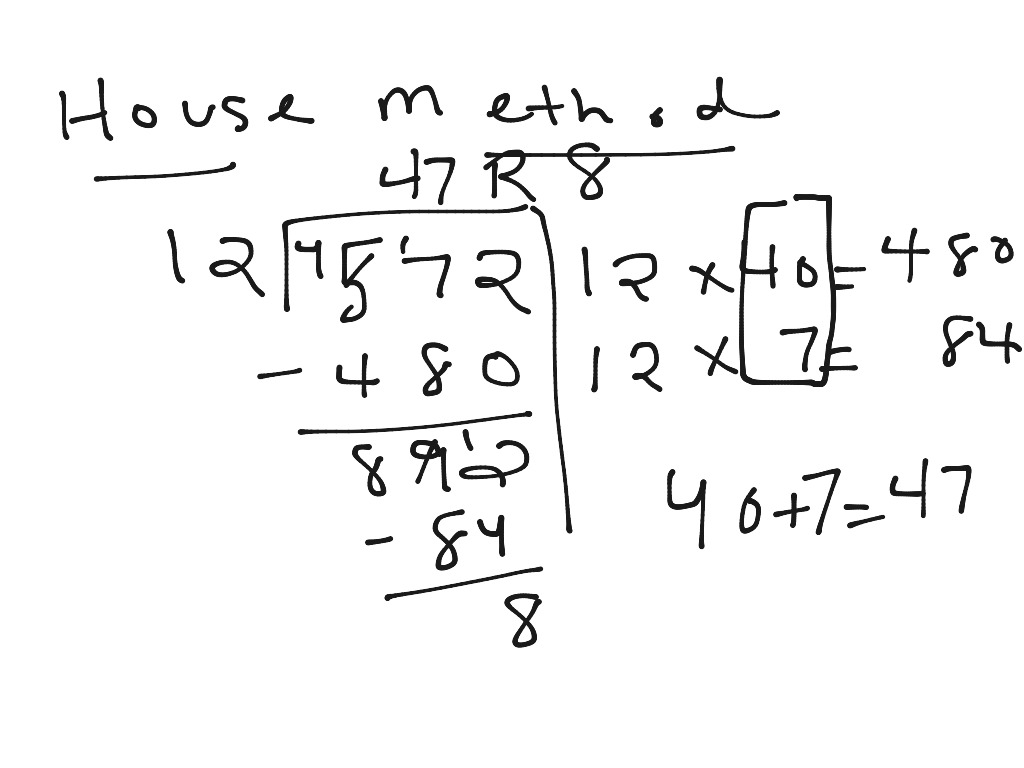 House method
47 R 8
12 45'72 12 × 40 = 480
- 480 12 × 7 = 84
89'2
40+7=47
- 84
8